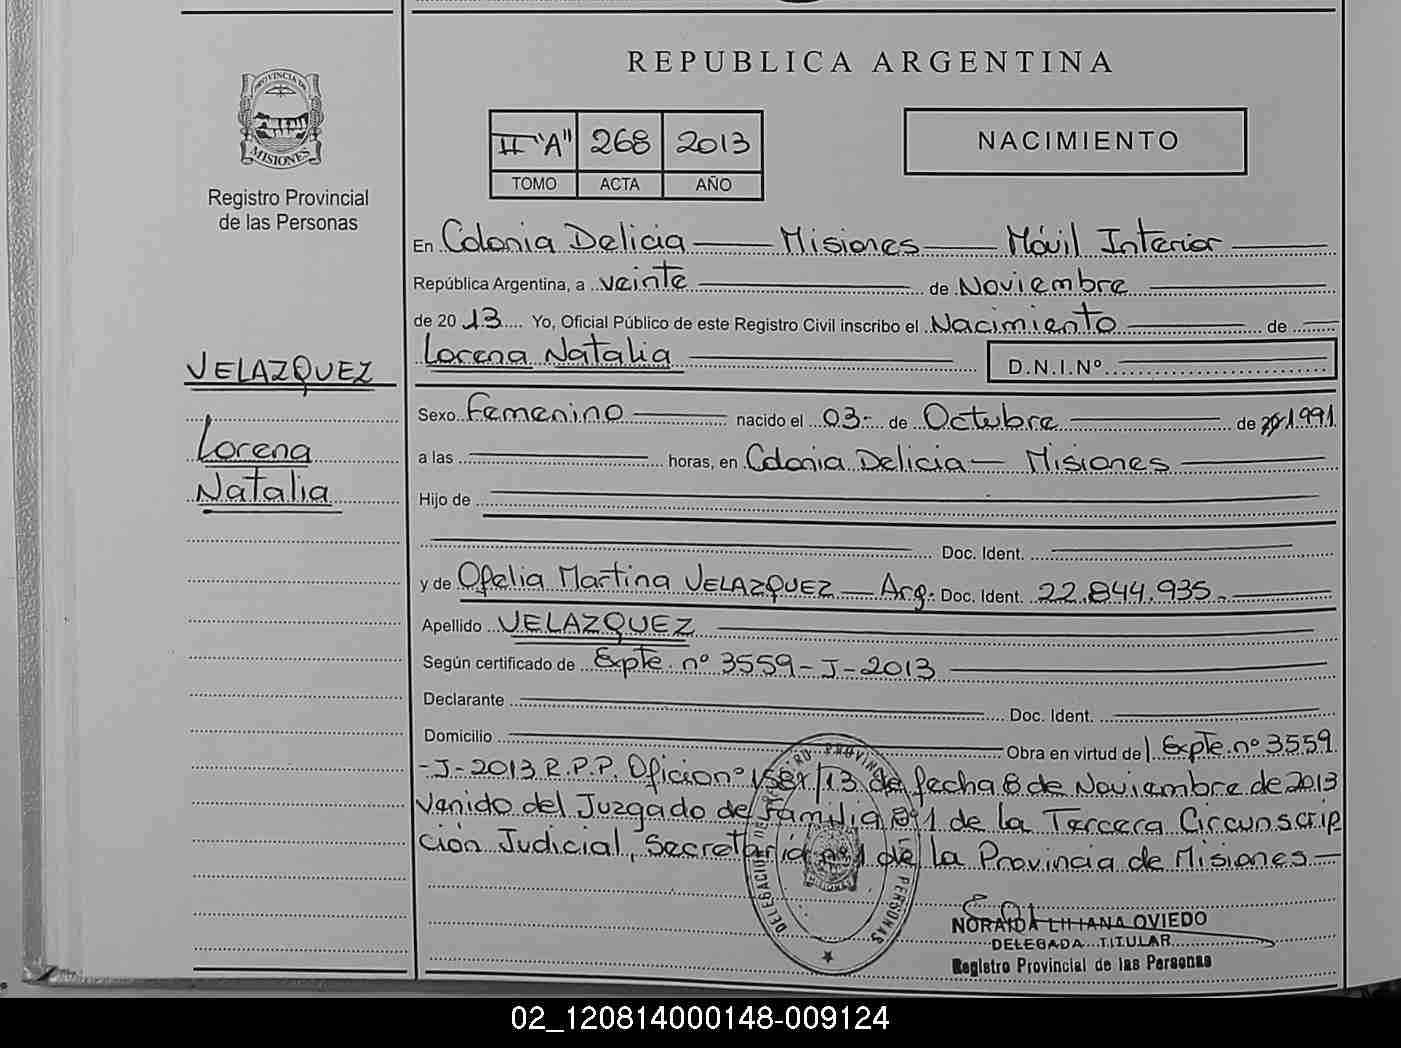 REPUBLICA ARGENTINA
PROVINCIA DE
MISIONES
Registro Provincial
de las Personas
II "A" 268 2013
TOMO ACTA AÑO
NACIMIENTO
En Colonia Delicia Misiones Móvil Interior
República Argentina, a veinte de Noviembre
de 20 13 Yo, Oficial Público de este Registro Civil inscribo el Nacimiento de
Lorena Natalia D.N.I.Nº
VELAZQUEZ
Lorena
Natalia
Sexo Femenino nacido el 03 de Octubre de 1.991
a las horas, en Colonia Delicia - Misiones
Hijo de
Doc. Ident.
y de Ofelia Martina VELAZQUEZ - Arg. Doc. Ident. 22.844.935.-
Apellido VELAZQUEZ
Según certificado de Expte. nº 3559-J-2013
Declarante Doc. Ident.
Domicilio Obra en virtud de Expte. nº 3559
-J-2013 R.P.P. Oficio nº /13 de fecha 8 de Noviembre de 2013
venido del Juzgado de Familia nº 1 de la Tercera Circunscrip
ción Judicial, Secretaría nº 1 de la Provincia de Misiones -
NORAIDA LILIANA OVIEDO
DELEGADA TITULAR
Registro Provincial de las Personas
02_120814000148-009124